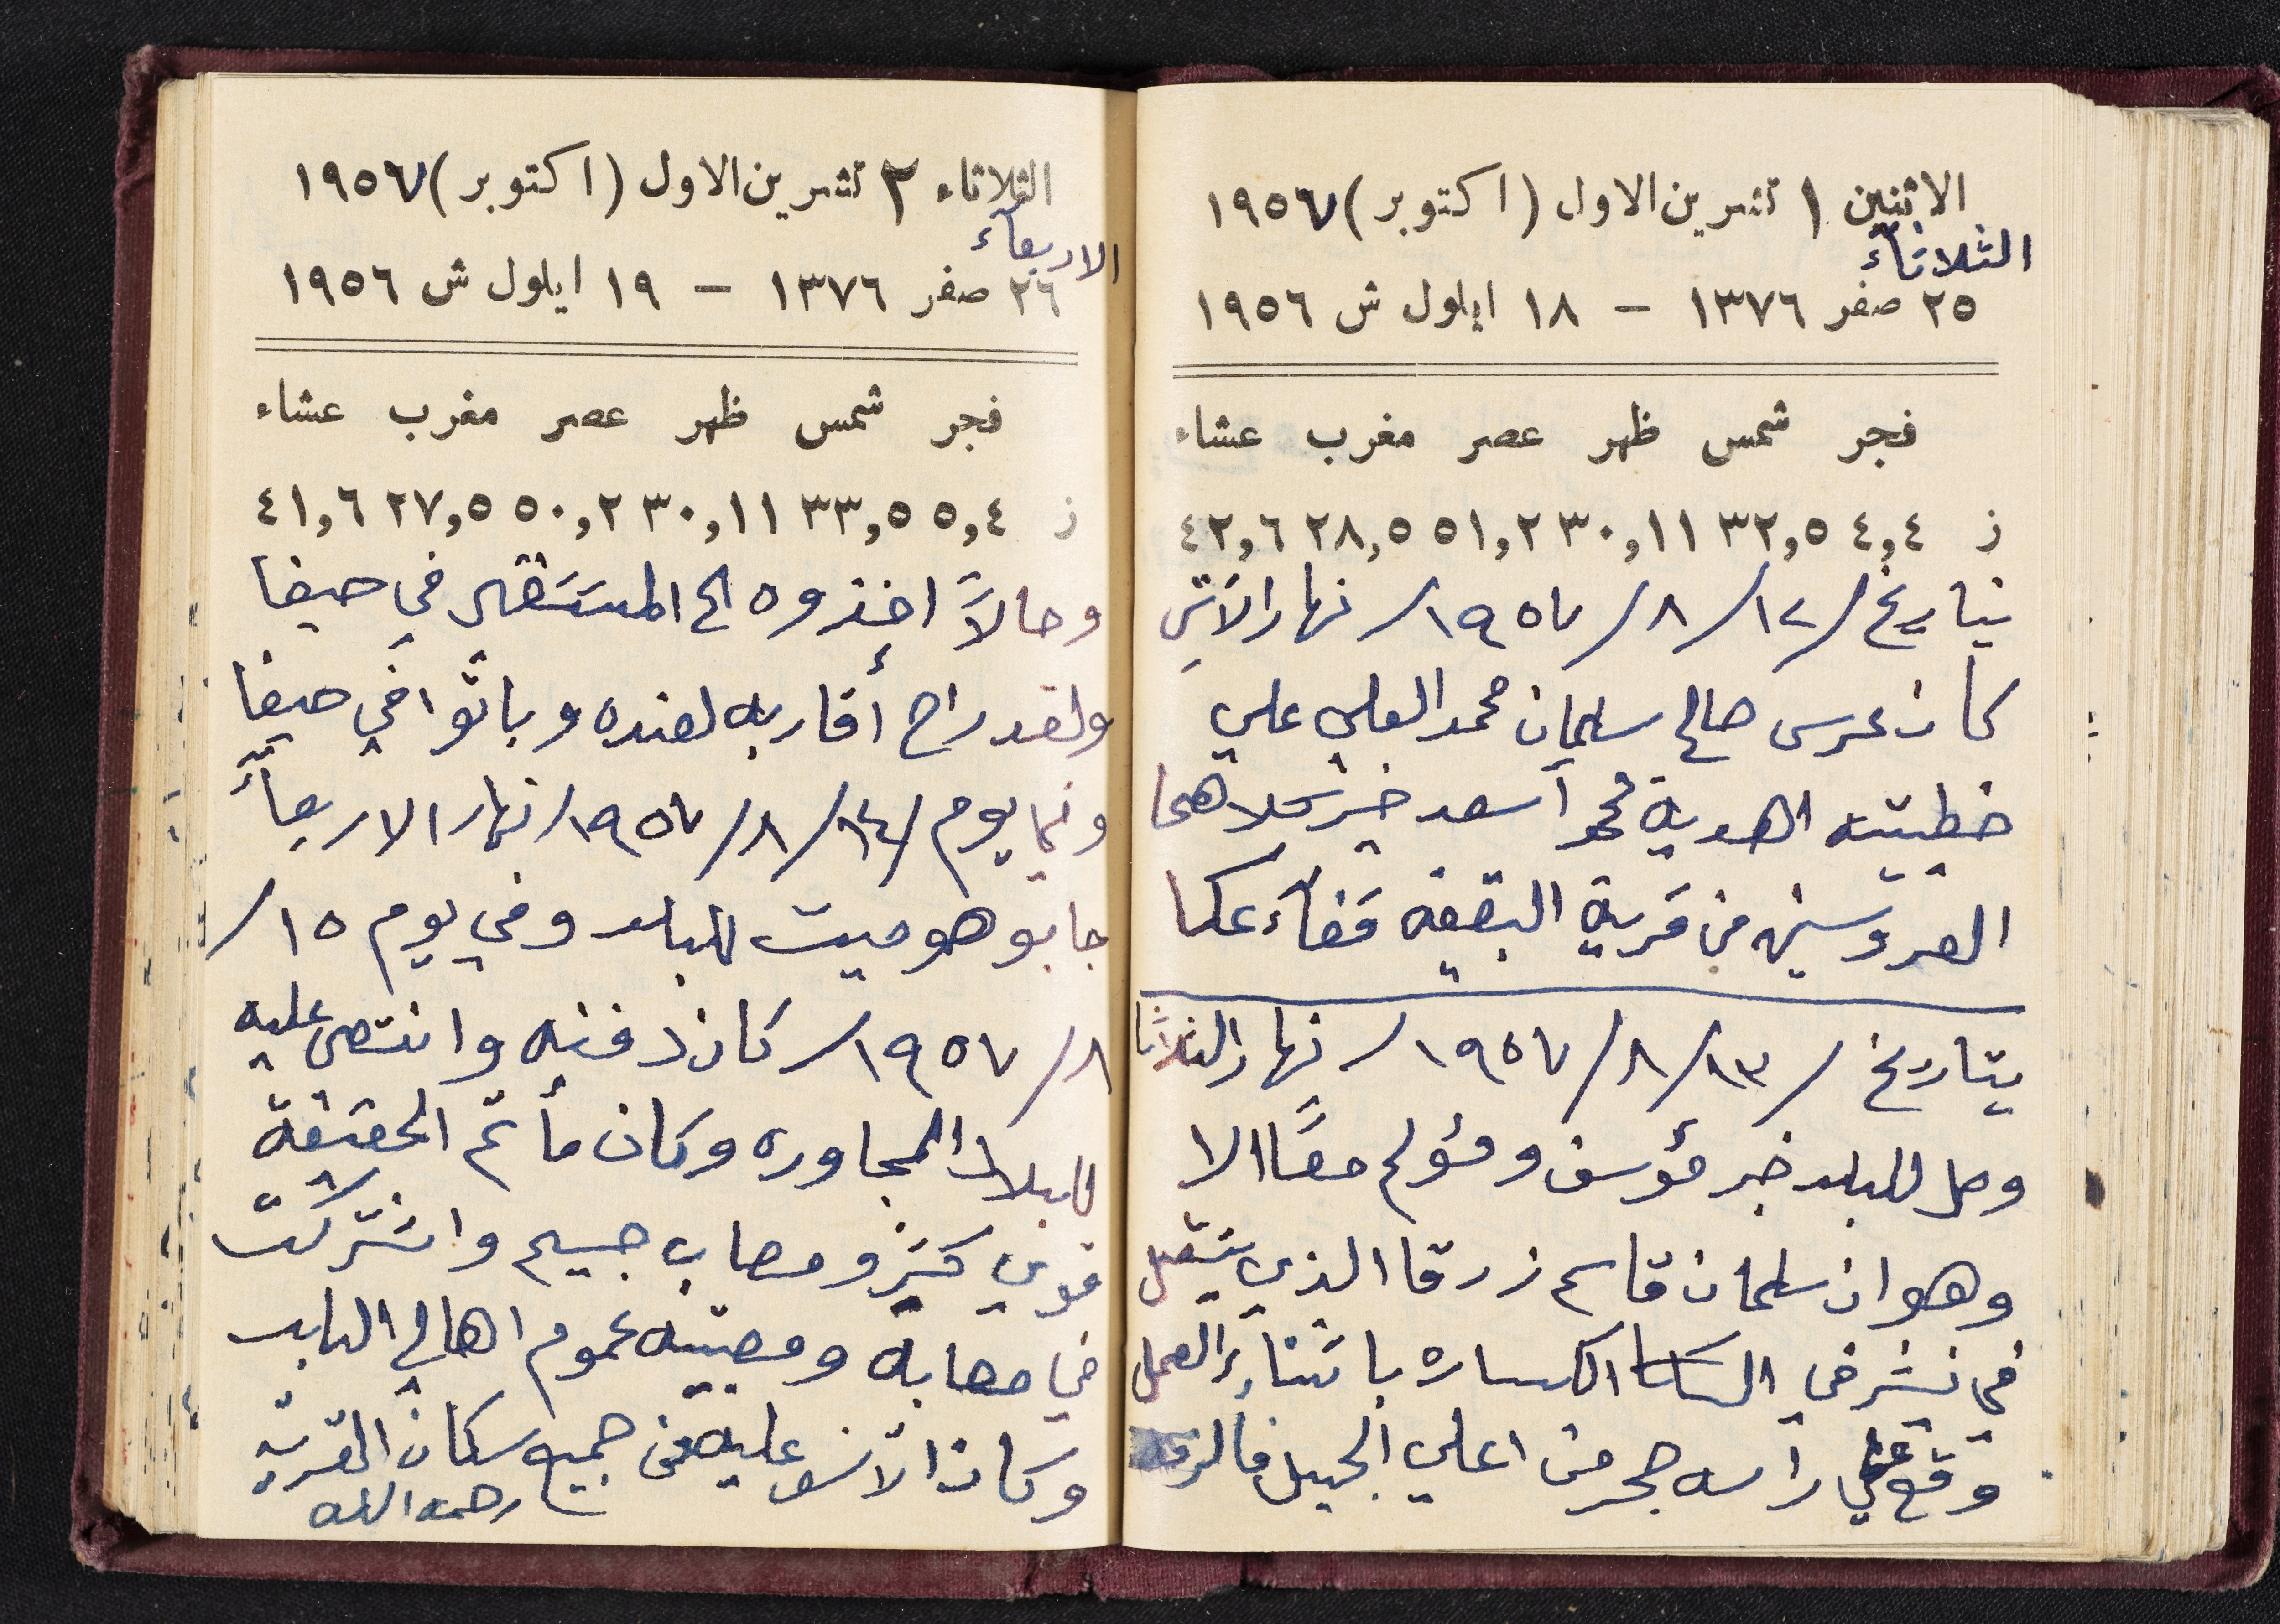 الاثنين ١ تشرين الاول (اكتوبر) ١٩٥٧
الثلاثاء
٢٥ صفر ١٣٧٦ — ١٨ ايلول ش ١٩٥٦
فجر شمس ظهر عصر مغرب عشاء
ز ٤,٤ ٣٢,٥ ٣٠,١١ ٥١,٢ ٢٨,٥ ٤٢,٦
بتاريخ /١٢/ ٨/ ١٩٥٧/ نهار الاثنين
كان عرس صالح سلمان محمد العلي علي
خطيبته الهدية محمد أسعد خير كلاهما
العروسين من قرية البقيعه قضاء عكا
بتاريخ /١٣/ ٨/ ١٩٥٧/ نهار الثلاثا
وصل للبلد خبر مؤسف ومؤلم معًا الا
وهو ان سلمان قاسم زرقا الذي يشتغل
في نيشر في الكساره باثناء العمل
وقع علي راسه حجر من اعلي الجبل
الثلاثاء ٢ تشرين الاول (اكتوبر) ١٩٥٧
الاربعاء
٢٦ صفر ١٣٧٦ — ١٩ ايلول ش ١٩٥٦
فجر شمس ظهر عصر مغرب عشاء
ز ٥,٤ ٣٣,٥ ٣٠,١١ ٥٠,٢ ٢٧,٥ ٤١,٦
وحالاً اخذوه الى المستشفى في حيفا
ولقد راح أقاربه لعنده وباتوا في حيفا
يوم /١٤/ ٨/ ١٩٥٧/ نهار الاربعاء
جابو هو ميت للبلد وفي يوم ١٥/
٨/ ١٩٥٧/ كان دفنه وانتصى عليه
للبلاد المجاوره وكان مأتم الحقيقة
قوي كبير ومصاب جسيم واشتركت
في مصابه ومصيبته عموم اهالي البلد
وكان الأسف عليه من جميع سكان القرية
رحمه الله